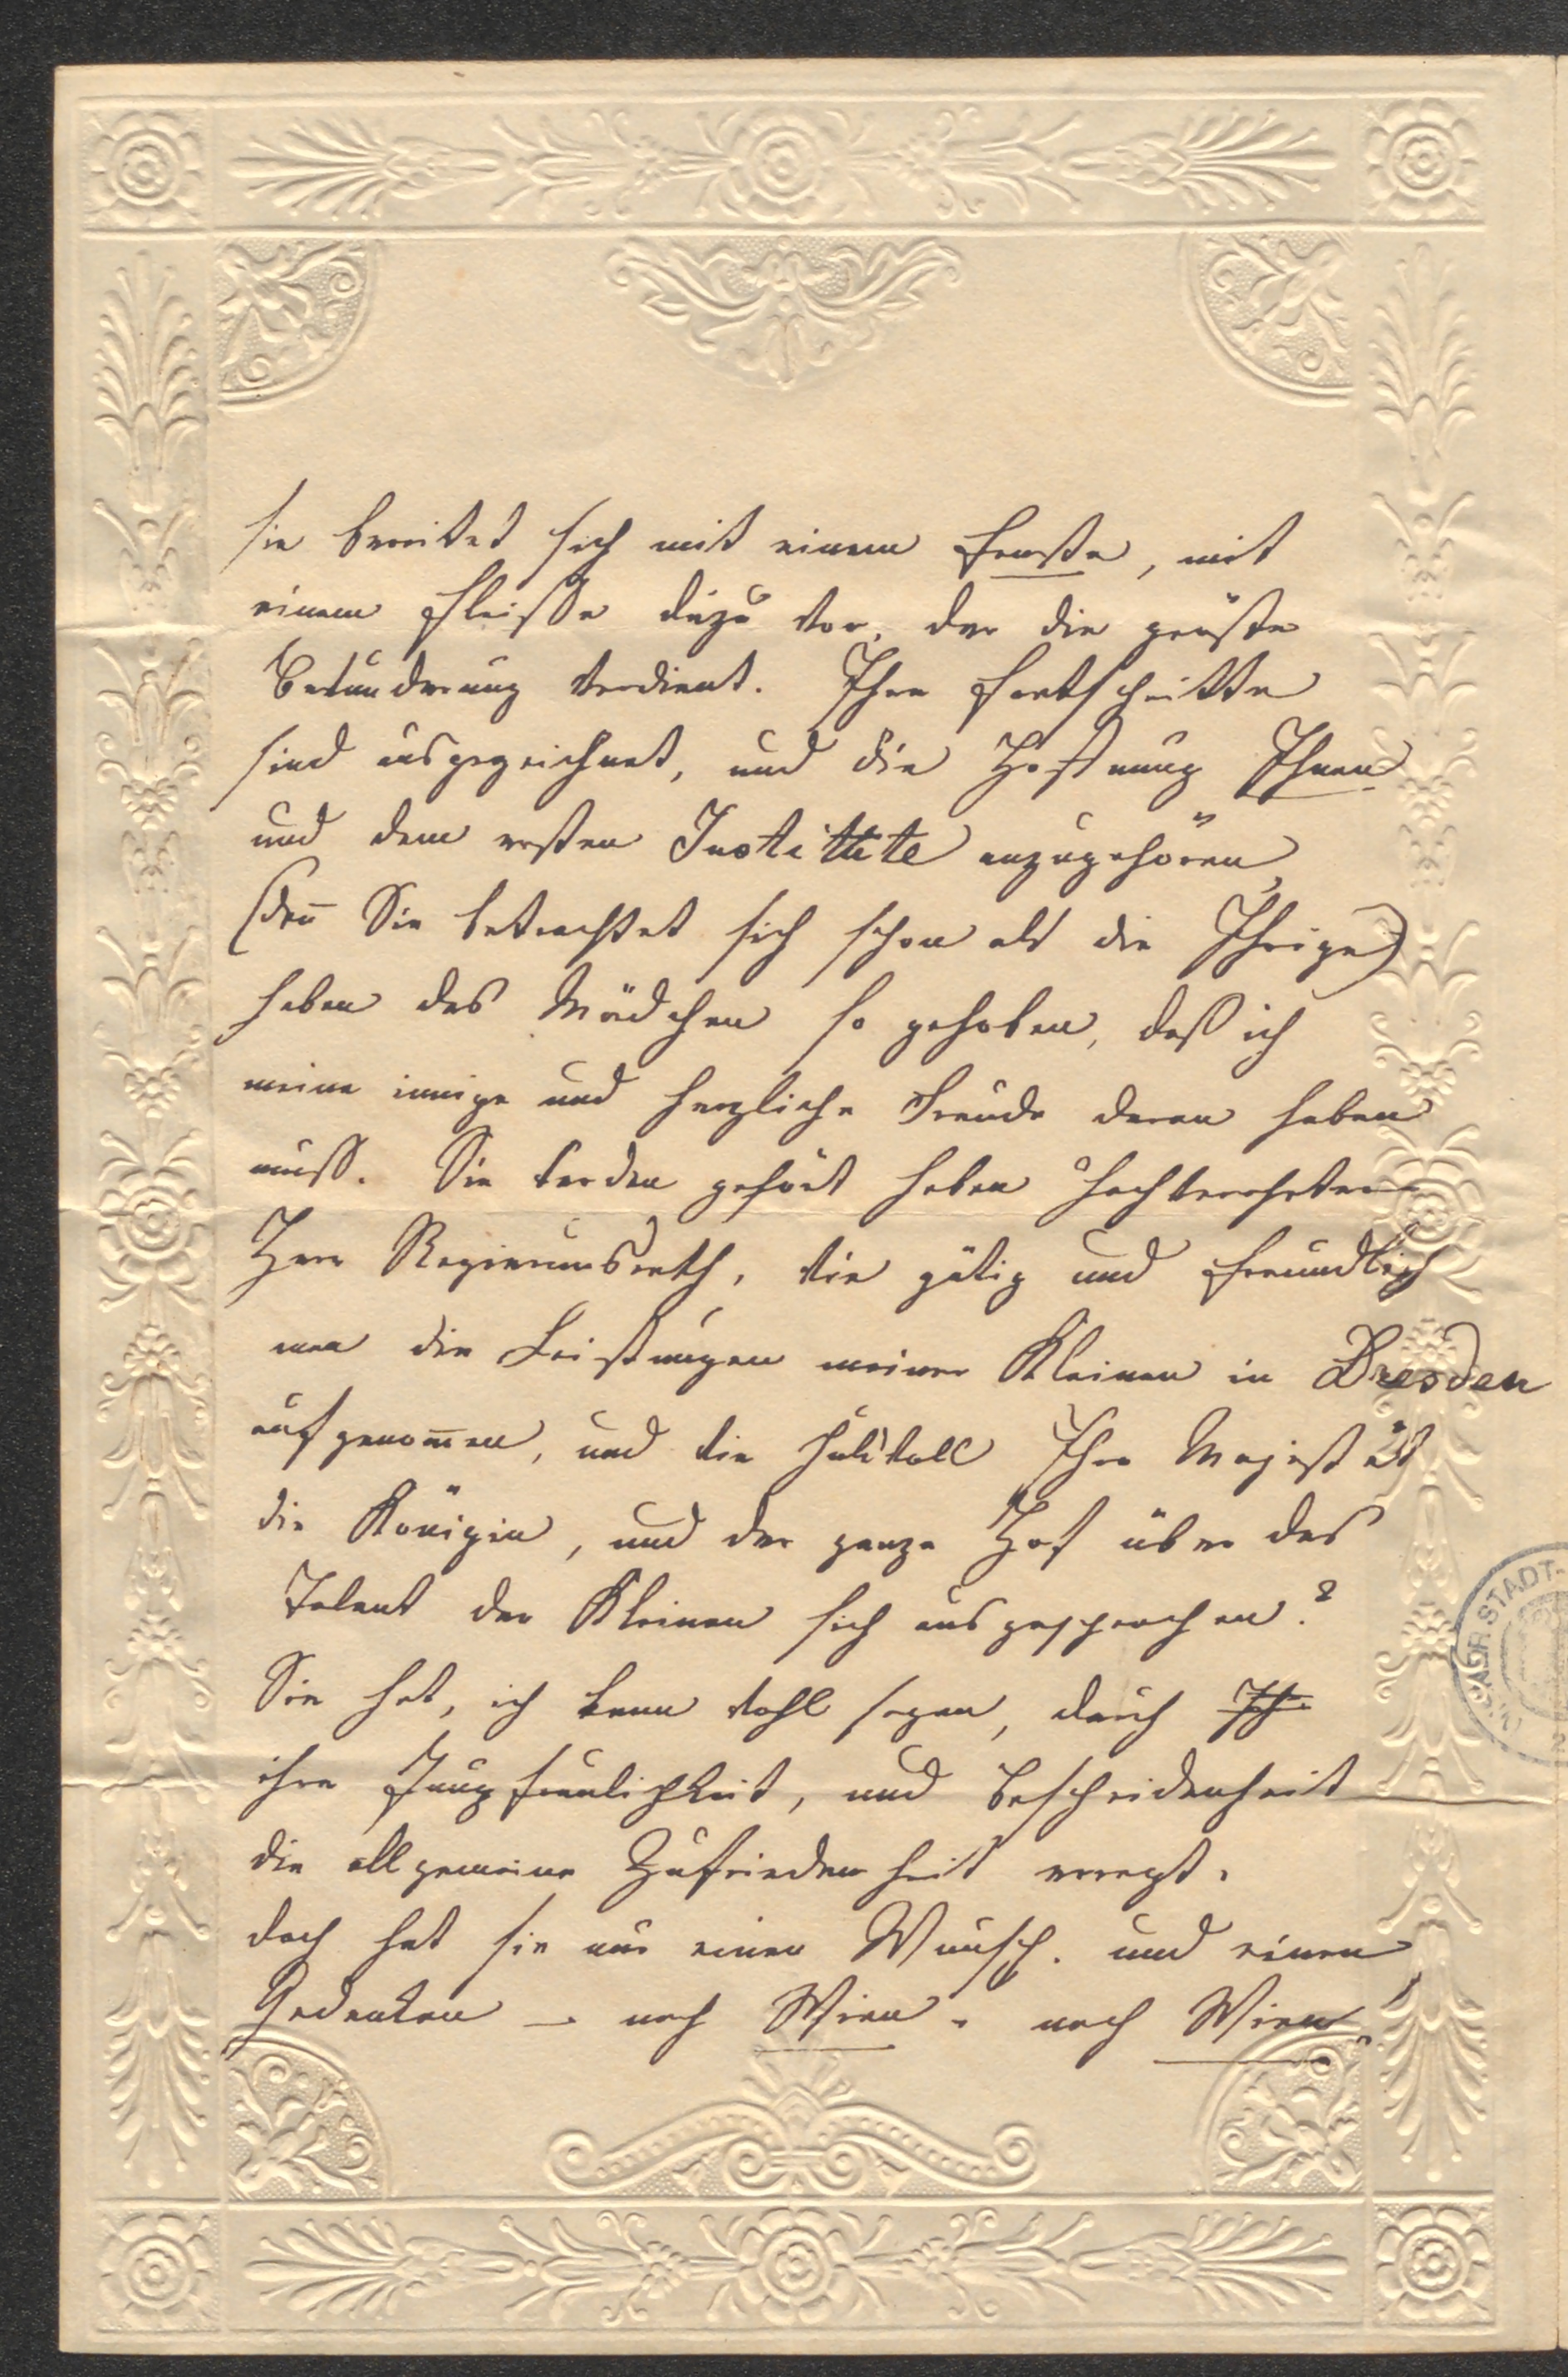 sie bereitet sich mit einem Ernste, mit
einem Fleiße dazu vor, der die größte
Bewunderung verdient. Ihre Fortschritte
sind ausgezeichnet, und die Hoffnung Ihnen
und dem ersten Institute anzugehören,
(den̅ Sie betrachtet sich schon als die Ihrige)
haben das Mädchen so gehoben, daß ich
meine innige und herzliche Freude daran haben
muß. Sie werden gehört haben hochverehrter
Herr Regierungsrath, wie gütig und freundlich
man die Leistungen meiner Kleinen in Dresden
aufgenom̅en, und wie huldvoll Ihre Majestät
die Königin, und der ganze Hof über das
Talent der Kleinen sich ausgesprochen?
Sie hat, ich kann wohl sagen, durch Ih
ihre Jungfräulichkeit, und Bescheidenheit
die allgemeine Zufriedenheit erregt.
doch hat sie nur einen Wunsch. und einen
Gedanken – nach Wien. nach Wien.
STADT-